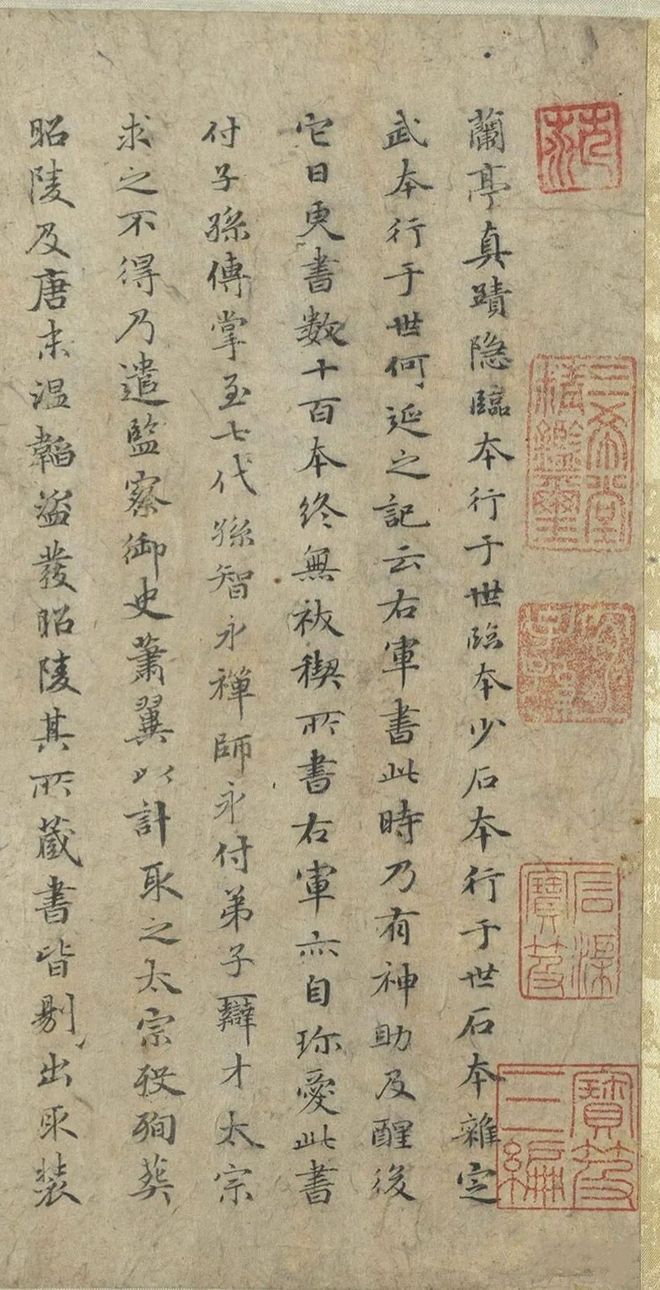 蘭亭真蹟隐臨本行于世臨本少石本行于世石本雜定
武本行于世何延之記云右軍書此時乃有神助及醒後
它日更書數十百本終無祓禊所書右軍亦自珎愛此書
付子孫傳掌至七代孫智永禪師永付弟子辯才太宗
求之不得乃遣監察御史蕭翼以計取之太宗殁殉葬
昭陵及唐末温韜盗發昭陵其所藏書皆剔出取装
三希堂
精鑑璽
石渠
寶笈
寶笈
三編